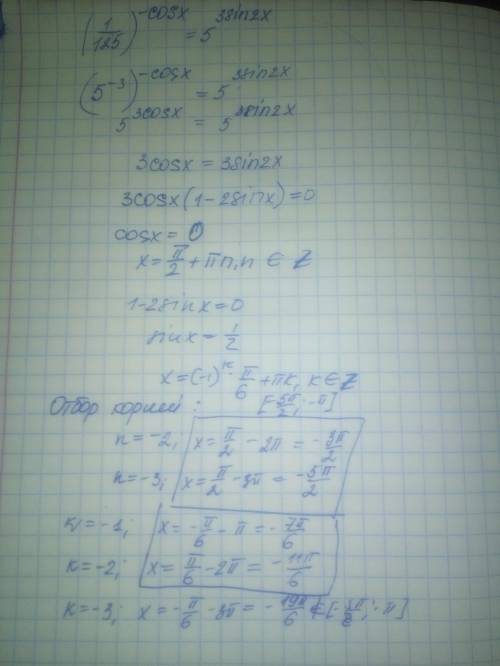 (1/125)^(-cosx) = 5^(3sin2x)
(5^(-3))^(-cosx) = 5^(3sin2x)
5^(3cosx) = 5^(3sin2x)
3cosx = 3sin2x
3cosx(1-2sinx)=0
cosx = 0
x = π/2 + πn, n ∈ Z
1-2sinx=0
sinx = 1/2
x = (-1)^k · π/6 + πk, k ∈ Z
Отбор корней: [-5π/2; -π]
n = -2; x = π/2 - 2π = -3π/2
n = -3; x = π/2 - 3π = -5π/2
k = -1; x = -π/6 - π = -7π/6
k = -2; x = π/6 - 2π = -11π/6
k = -3; x = -π/6 - 3π = -19π/6 ∉ [-5π/2; -π]